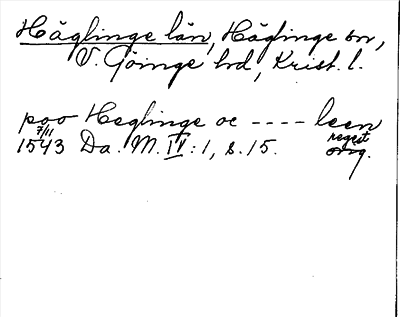 Häglinge län, Häglinge sn,
V. Göinge hd, Krist. l.
poo Heglinge oc ---- leen
7/11
1543 Da. M. IV:1, s. 15. regest
orig.